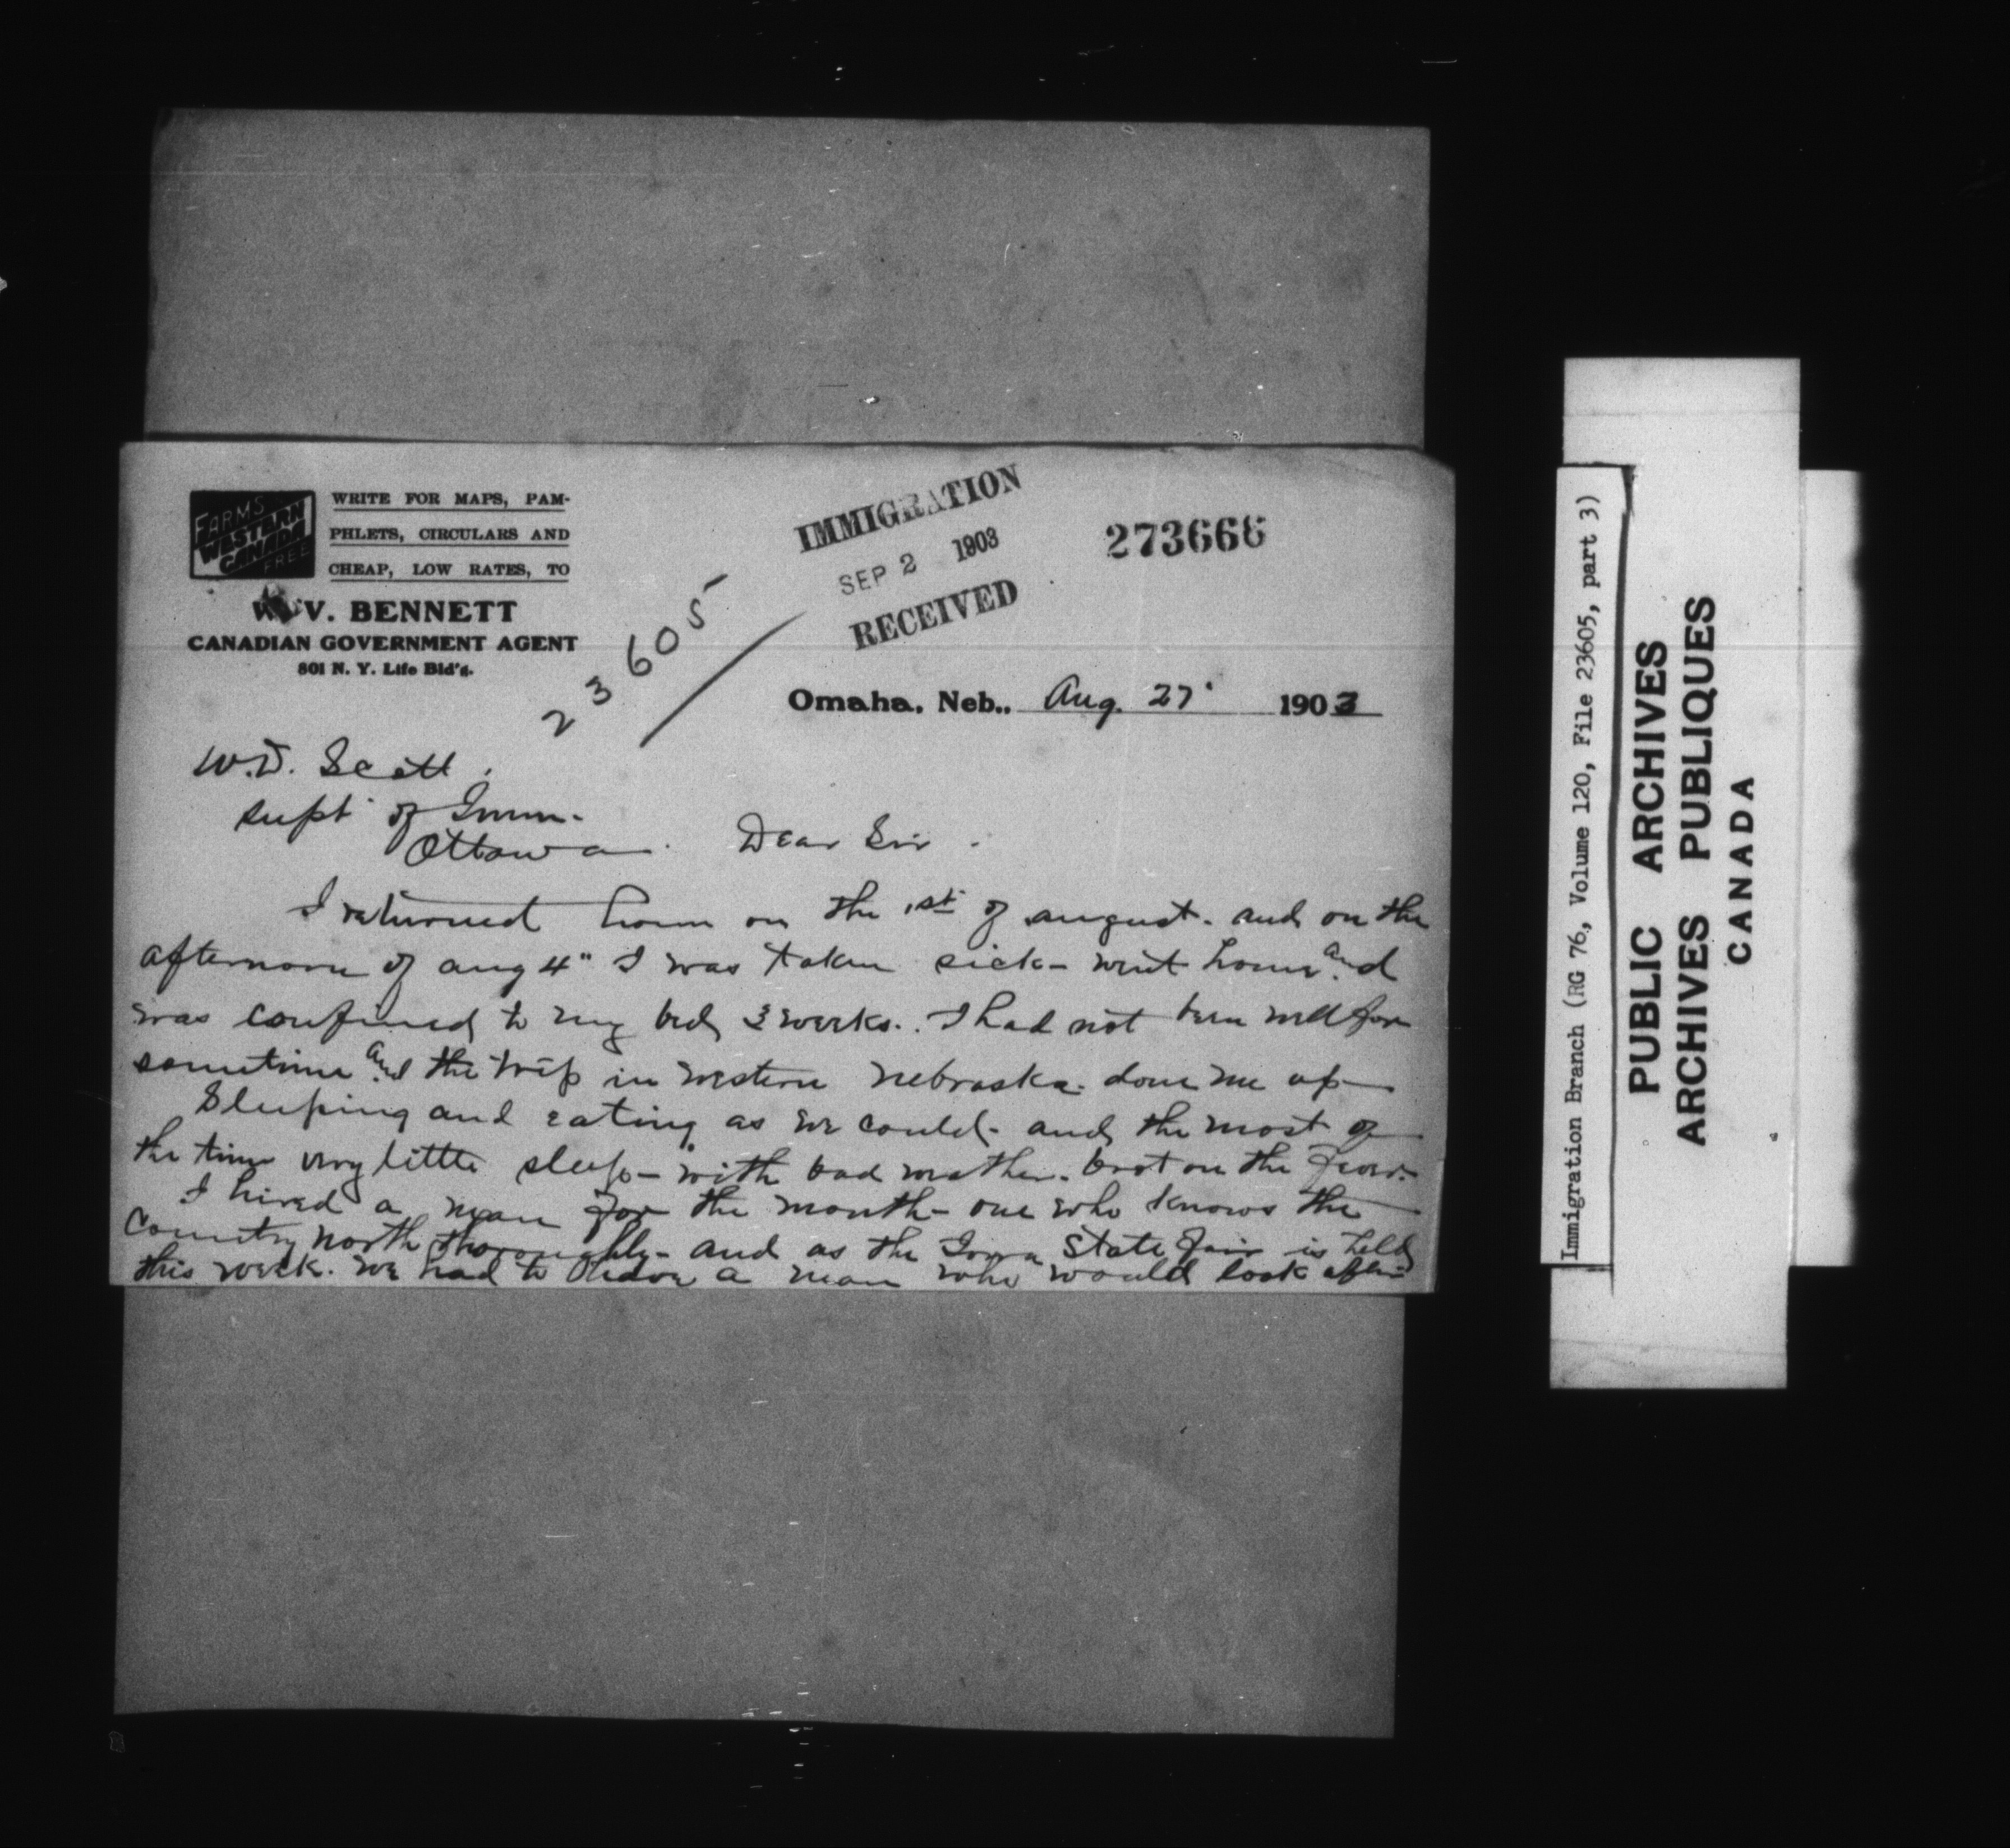 FARMS
WESTERN
CANADA
FREE
WRITE FOR MAPS, PAM-
PHLETS, CIRCULARS AND
CHEAP, LOW RATES, TO
W. V. BENNETT
CANADIAN GOVERNMENT AGENT
801 N. Y. Life Bld'g.
23605
IMMIGRATION
SEP 2 1903
RECEIVED
273666
Omaha, Neb., Aug. 27 1903
W.D. Scott.
Supt of Imm.
Ottawa. Dear Sir.
I returned home on the 1st of august. and on the
afternoon of aug 4" I was taken sick - went home and
was confined to my bed 3 weeks. I had not been well for
sometime and the trip in western nebraska. done me up
Sleeping and eating as we could - and the most of
the time very little sleep - with bad weather. brot on the fever.
I hired a man for the month - one who knows the
Country north thoroughly - and as the Iowa State fair is held
this week. we had to have a man who would look after
Immigration Branch (RG 76, Volume 120, File 23605, part 3)
PUBLIC ARCHIVES
ARCHIVES PUBLIQUES
CANADA